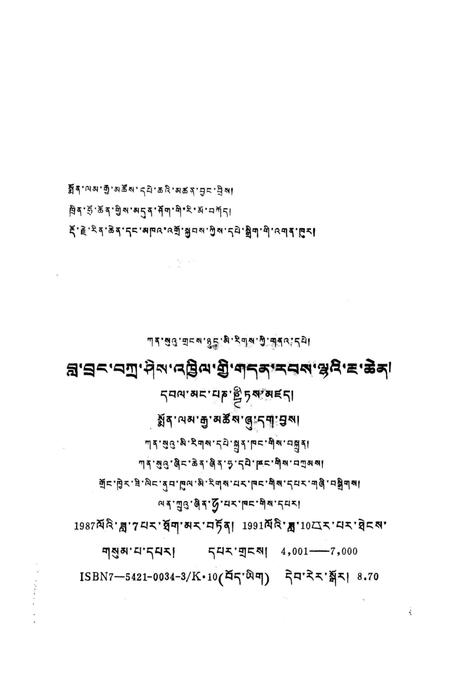 སྨོན་ལམ་རྒྱ་མཚོས་དཔེ་ཆའི་མཚན་བྱང་བྲིས།
ཁྲིན་ཧྲོ་ཚོན་གྱིས་མདུན་ཤོག་གི་རི་མོ་བཀོད།
རྡོ་རྗེ་རིན་ཆེན་དང་མཁའ་འགྲོ་སྐྱབས་ཀྱིས་དཔེ་སྒྲིག་གི་འགན་ཁུར།
ཀན་སུའུ་གྲངས་ཉུང་མི་རིགས་ཀྱི་གནའ་དཔེ།
བླ་བྲང་བཀྲ་ཤིས་འཁྱིལ་གྱི་གདན་རབས་ལྷའི་རྔ་ཆེན།
དབལ་མང་པཎྜི་ཏས་མཛད།
སྨོན་ལམ་རྒྱ་མཚོས་ཞུ་དག་བྱས།
ཀན་སུའུ་མི་རིགས་དཔེ་སྐྲུན་ཁང་གིས་བསྐྲུན།
ཀན་སུའུ་ཞིང་ཆེན་ཞིན་ཧྭ་དཔེ་ཁང་གིས་བཀྲམས།
གྲོང་ཁྱེར་ཟི་ལིང་ནུབ་ཁུལ་མི་རིགས་པར་ཁང་གིས་དཔར་གཞི་བསྒྲིགས།
ལན་ཀྲུའུ་ཞིན་ཧྭ་པར་ཁང་གིས་དཔར།
1987ལོའི་ཟླ་7པར་ཐོག་མར་བཏོན། 1991ལོའི་ཟླ་10པར་པར་ཐེངས་
གསུམ་པ་དཔར། དཔར་གྲངས། 4,001—7,000
ISBN7—5421-0034-3/K·10(བོད་ཡིག) དེབ་རེར་སྒོར། 8.70